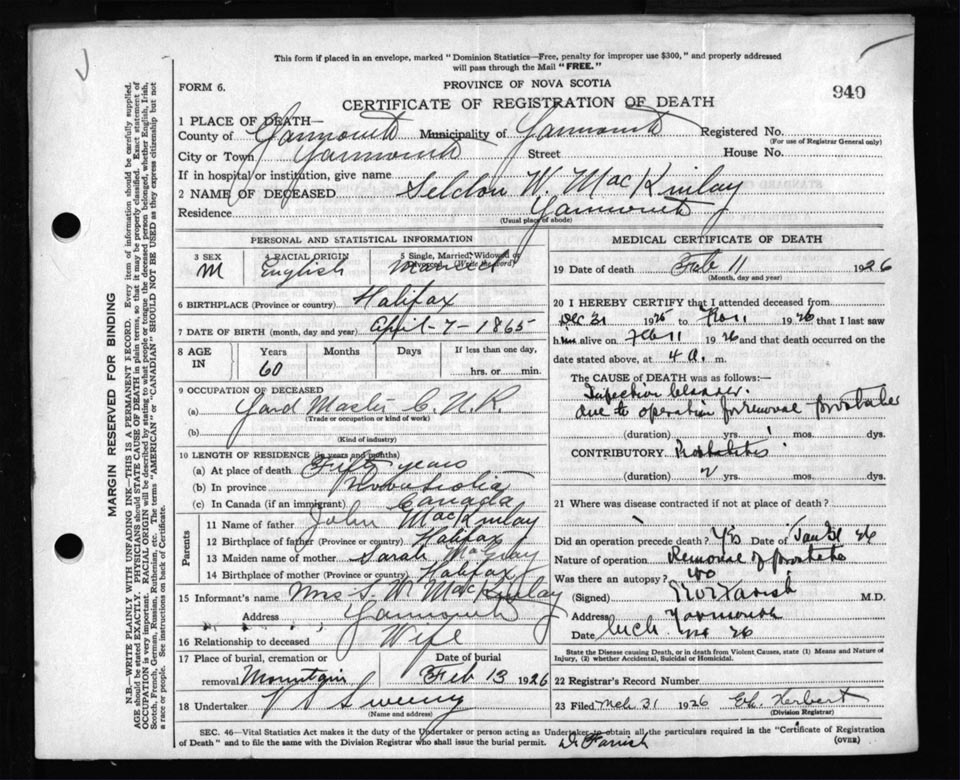 This form if placed in an envelope, marked "Dominion Statistics—Free, penalty for improper use $300," and properly addressed
will pass through the Mail "FREE."
FORM 6.
PROVINCE OF NOVA SCOTIA
940
CERTIFICATE OF REGISTRATION OF DEATH
1 PLACE OF DEATH—
County of Yarmouth Municipality of Yarmouth Registered No.
(For use of Registrar General only)
City or Town Yarmouth Street House No.
If in hospital or institution, give name
2 NAME OF DECEASED Seldon W. MacKinlay
Residence Yarmouth
(Usual place of abode)
MARGIN RESERVED FOR BINDING
N.B.—WRITE PLAINLY WITH UNFADING INK—THIS IS A PERMANENT RECORD. Every item of information should be carefully supplied.
AGE should be stated EXACTLY. PHYSICIANS should STATE CAUSE OF DEATH in plain terms, so that it may be properly classified. Exact statement of
OCCUPATION is very important. RACIAL ORIGIN will be described by stating to what people or tongue the deceased person belonged, whether English, Irish,
Scotch, French, German, Russian, Ruthenian, etc. The terms "AMERICAN" or "CANADIAN" SHOULD NOT BE USED as they express citizenship but not
a race or people. See instructions on back of Certificate.
PERSONAL AND STATISTICAL INFORMATION
3 SEX 4 RACIAL ORIGIN 5 Single, Married, Widowed or
M English Married
6 BIRTHPLACE (Province or country) Halifax
7 DATE OF BIRTH (month, day and year) April-7-1865
8 AGE IN Years Months Days If less than one day,
60 hrs. or min.
9 OCCUPATION OF DECEASED
(a) Yard Master C.N.R.
(Trade or occupation or kind of work)
(b)
(Kind of industry)
10 LENGTH OF RESIDENCE (in years and months)
(a) At place of death Fifty years
(b) In province Nova Scotia
(c) In Canada (if an immigrant) Canada
Parents
11 Name of father John MacKinlay
12 Birthplace of father (Province or country) Halifax
13 Maiden name of mother Sarah
14 Birthplace of mother (Province or country) Halifax
15 Informant's name Mrs S. W. MacKinlay
Address Yarmouth
16 Relationship to deceased Wife
17 Place of burial, cremation or Date of burial
removal Mountain Feb 13 1926
18 Undertaker V S Sweeny
(Name and address)
MEDICAL CERTIFICATE OF DEATH
19 Date of death Feb 11 1926
(Month, day and year)
20 I HEREBY CERTIFY that I attended deceased from
Dec 31 1925 to Feb 11 1926 that I last saw
him alive on Feb 11 1926 and that death occurred on the
date stated above, at 4 a. m.
The CAUSE OF DEATH was as follows:—
Infection bladder.
due to operation for removal prostate
(duration) yrs. 1 mos. dys.
CONTRIBUTORY Prostatitis
(duration) 2 yrs. mos. dys.
21 Where was disease contracted if not at place of death?
Did an operation precede death? Yes Date of Jan 31 26
Nature of operation Removal of prostate
Was there an autopsy? No
(Signed) Farish M.D.
Address Yarmouth
Date Mch 26
State the Disease causing Death, or in death from Violent Causes, state (1) Means and Nature of
Injury, (2) whether Accidental, Suicidal or Homicidal.
22 Registrar's Record Number
23 Filed Mch 31 1926 Herbert
(Division Registrar)
SEC. 46—Vital Statistics Act makes it the duty of the Undertaker or person acting as Undertaker to obtain all the particulars required in the "Certificate of Registration
of Death" and to file the same with the Division Registrar who shall issue the burial permit. Dr Farish (OVER)